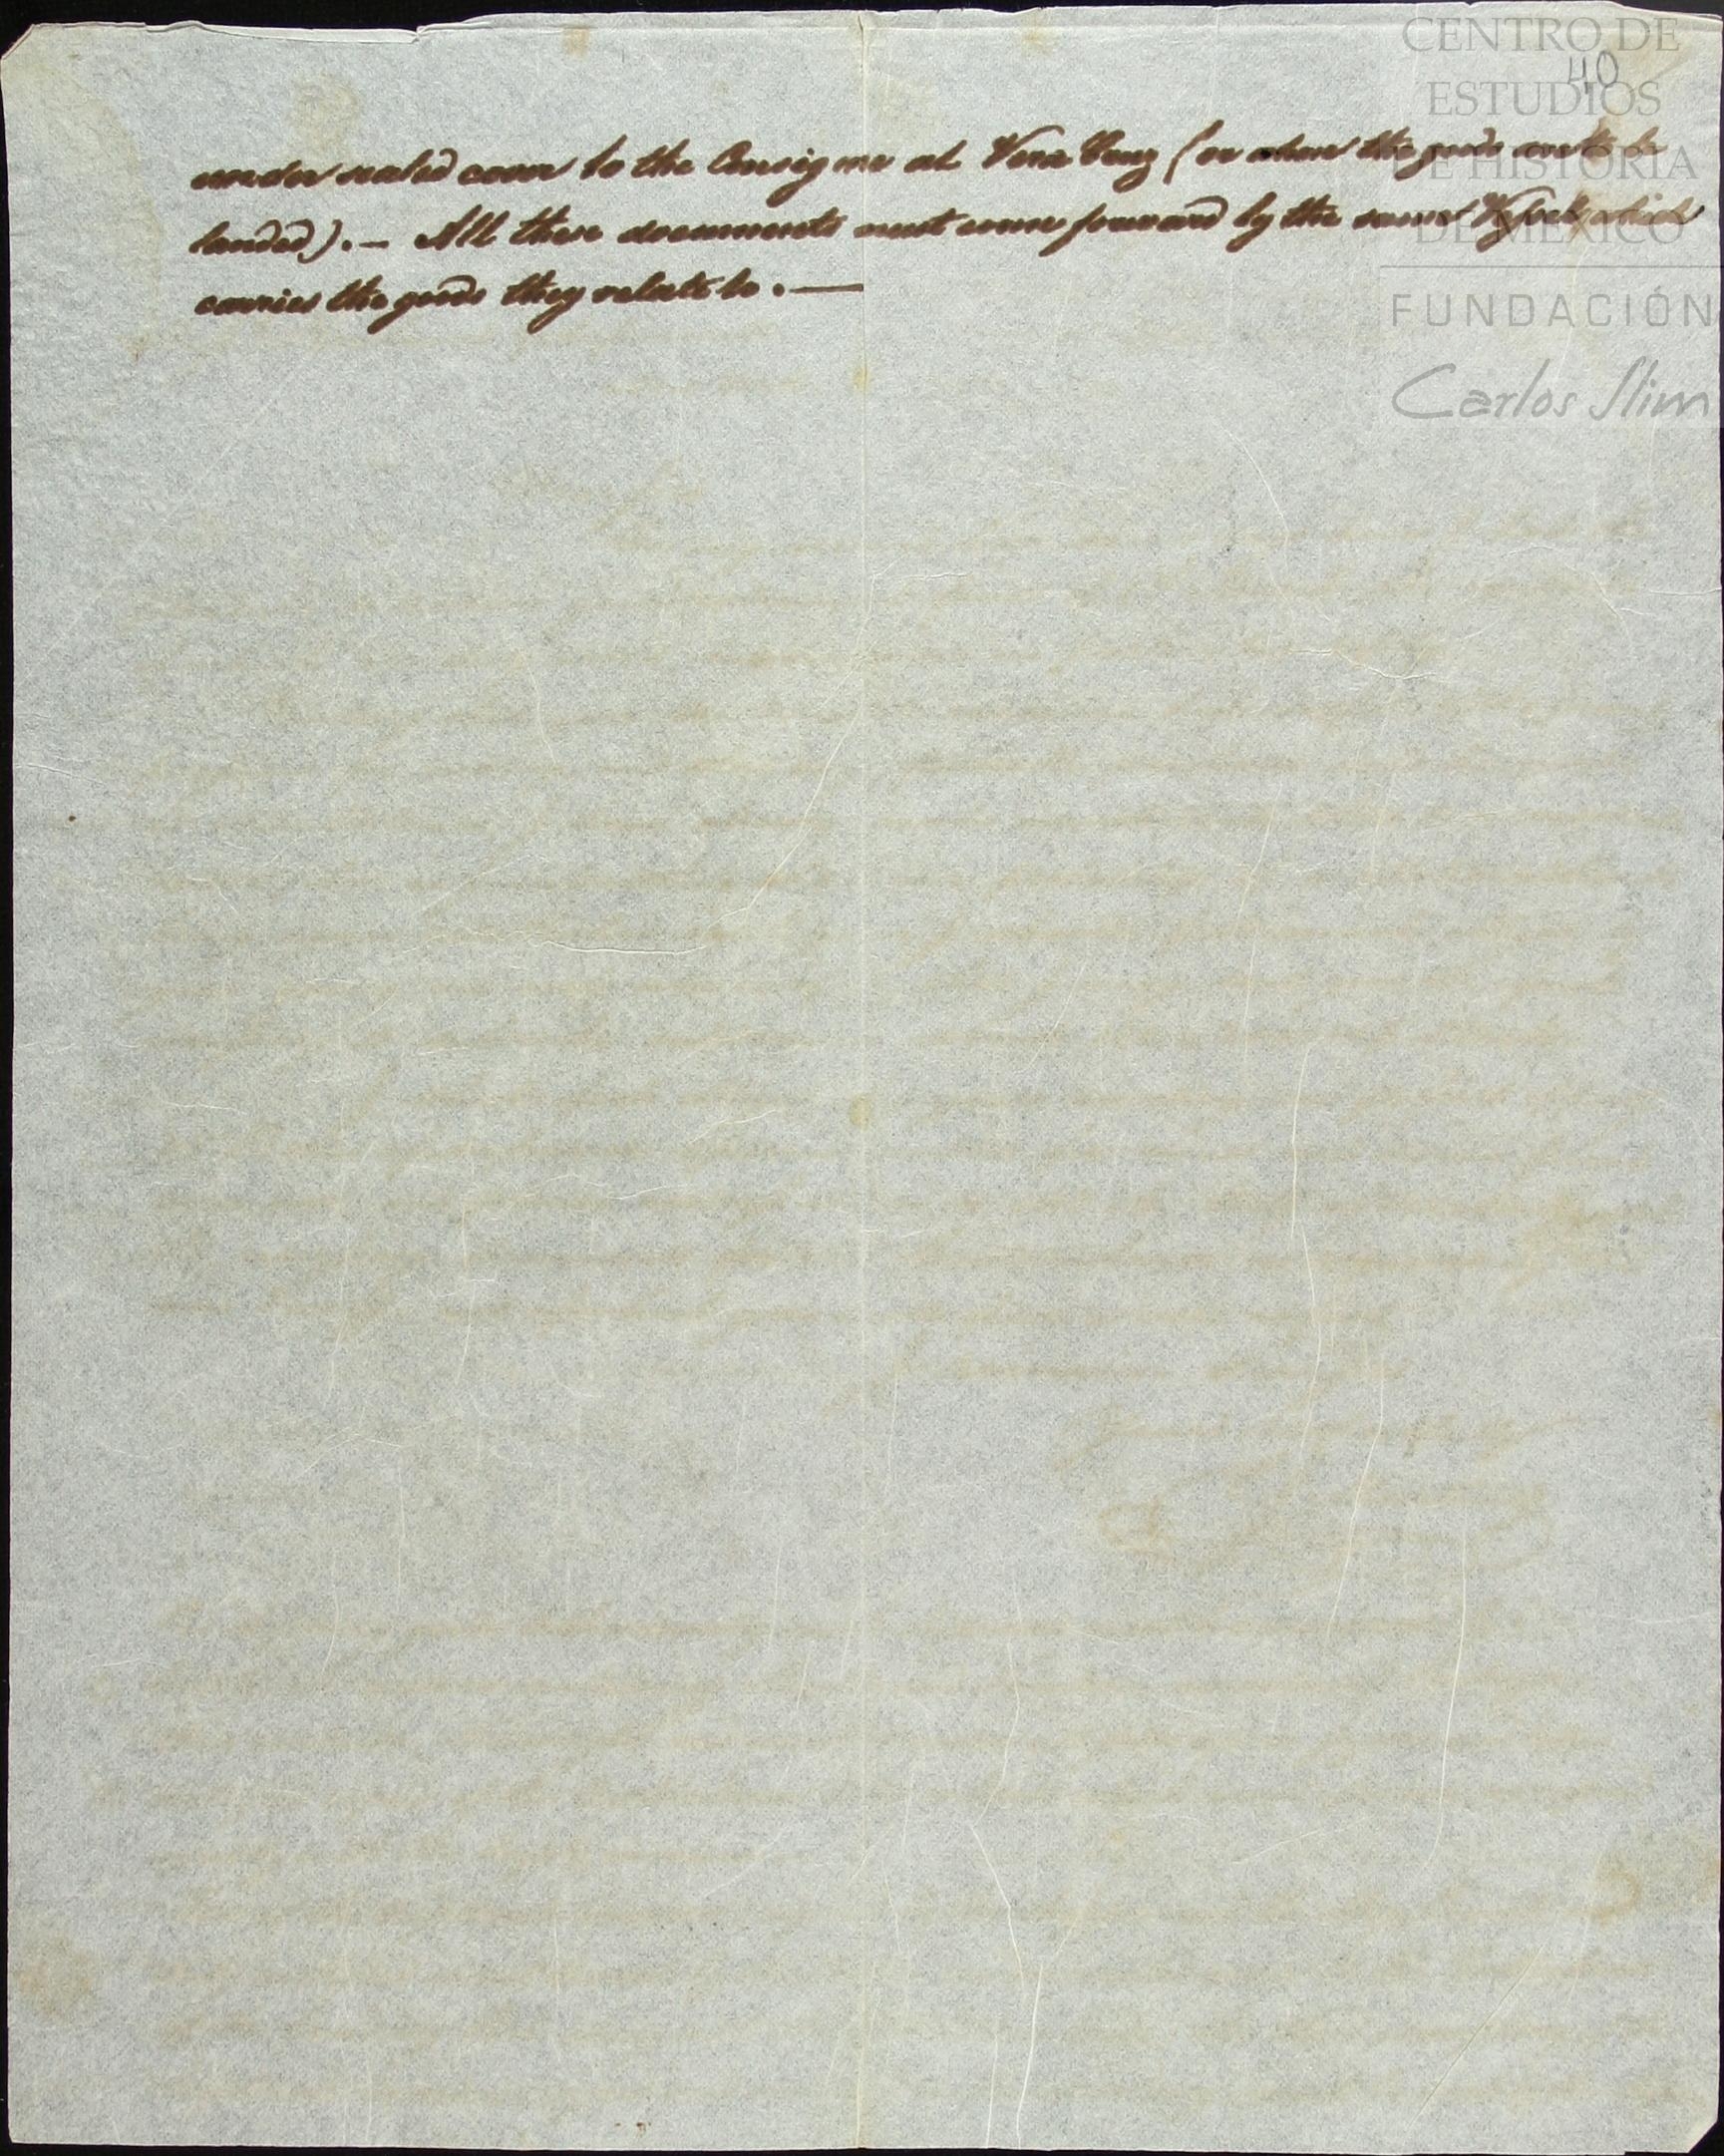 CENTRO DE
ESTUDIOS
DE HISTORIA
DE MEXICO
FUNDACIÓN
Carlos Slim
40
under sealed cover to the Consignee at Vera Cruz (or where the goods are to be
landed). — All these documents must come forward by the same Vessel which
carries the goods they relate to. —